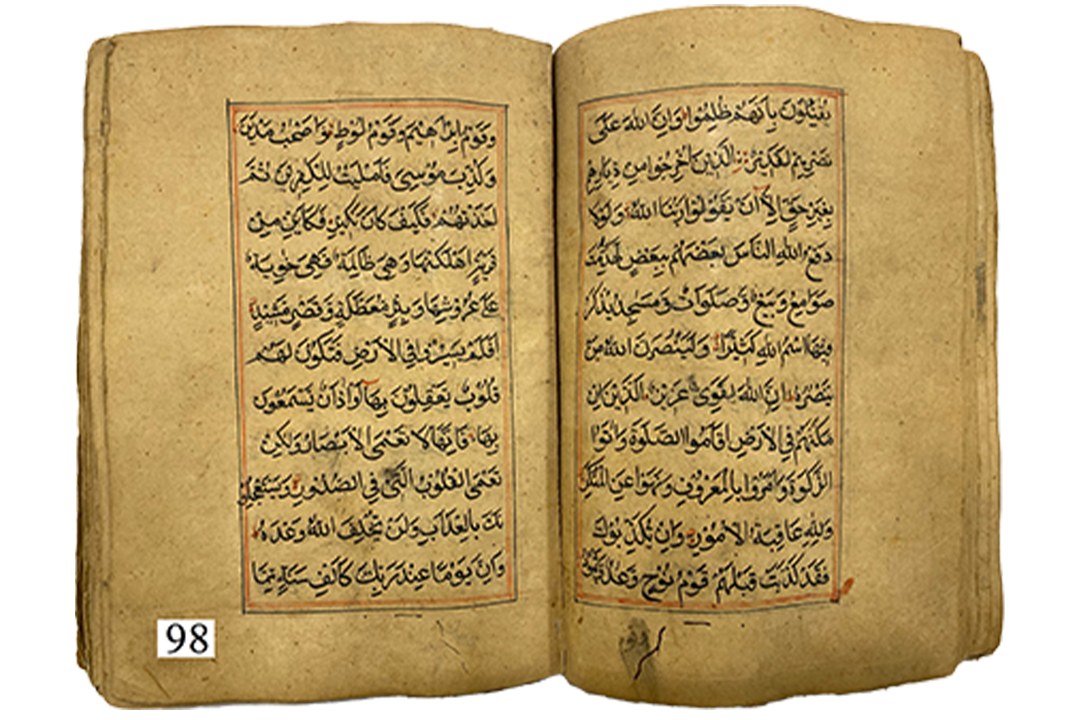 يقاتلون بانهم ظلموا وان الله على
نصرهم لقدير الذين اخرجوا من ديارهم
بغير حق الا ان يقولوا ربنا الله ولولا
دفع الله الناس بعضهم ببعض لهدمت
صوامع وبيع وصلوات ومسجد يذكر
فيها اسم الله كثيرا ولينصرن الله من
ينصره ان الله لقوى عزيز الذين ان
مكنهم في الارض اقاموا الصلوة واتوا
الزكوة وامروا بالمعروف ونهوا عن المنكر
ولله عاقبة الامور وان يكذبوك
فقد كذبت قبلهم قوم نوح وعاد وثمود
وقوم ابراهيم وقوم لوط واصحب مدين
وكذب موسى فامليت للكفرين ثم
اخذتهم فكيف كان نكير فكاين من
قرية اهلكنها وهى ظالمة فهى خاوية
على عروشها وبئر معطلة وقصر مشيد
افلم يسيروا في الارض فتكون لهم
قلوب يعقلون بها او اذان يسمعون
بها فانها لا تعمى الابصار ولكن
تعمى القلوب التى في الصدور ويستعجلون
نك بالعذاب ولن يخلف الله وعده
وان يوما عند ربك كالف سنة مما
98